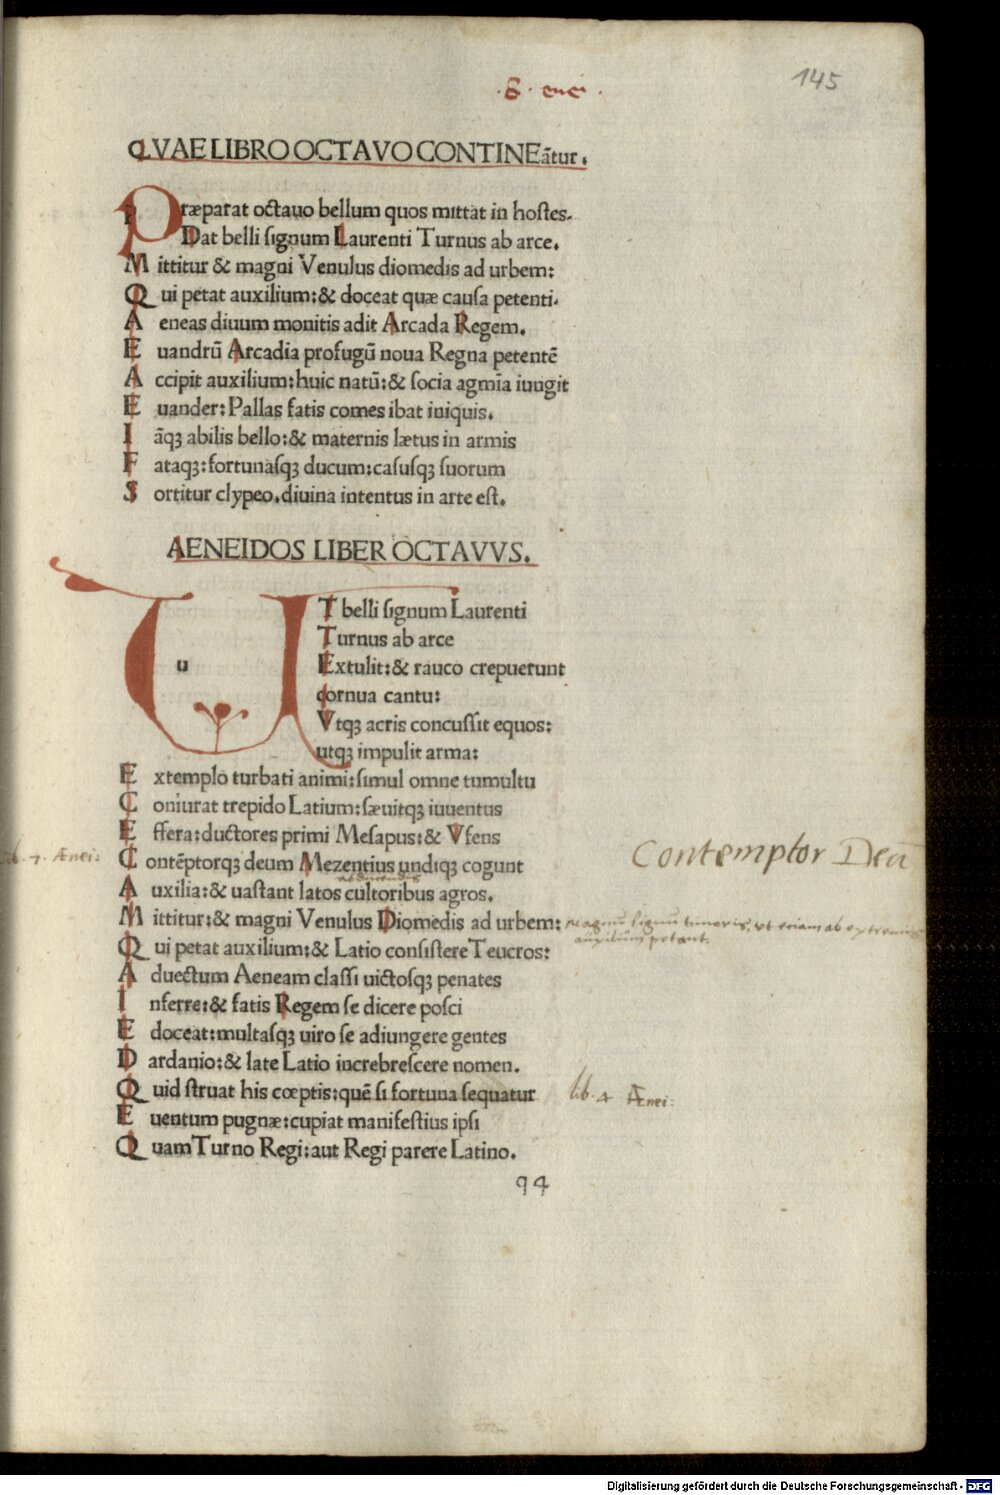 145
.8. enei.
QVAE LIBRO OCTAVO CONTINEātur.
PRæparat octauo bellum quos mittat in hostes.
Dat belli signum Laurenti Turnus ab arce.
Mittitur & magni Venulus diomedis ad urbem:
Qui petat auxilium:& doceat quæ causa petenti.
Aeneas diuum monitis adit Arcada Regem.
Euandrū Arcadia profugū noua Regna petentē
Accipit auxilium:huic natū:& socia agmīa iungit
Euander:Pallas fatis comes ibat iniquis.
Iāqꝫ abilis bello:& maternis lætus in armis
Fataqꝫ:fortunasqꝫ ducum:casusqꝫ suorum
Sortitur clypeo.diuina intentus in arte est.
AENEIDOS LIBER OCTAVVS.
UT belli signum Laurenti
Turnus ab arce
Extulit:& rauco crepuerunt
cornua cantu:
Vtqꝫ acris concussit equos:
utqꝫ impulit arma:
Extemplo turbati animi:simul omne tumultu
Coniurat trepido Latium:sæuitqꝫ iuuentus
Effera:ductores primi Mesapus:& Vfens
lib. 7. Ænei:
Contēptorqꝫ deum Mezentius undiqꝫ cogunt
Contemptor Deū
Auxilia:& uastant latos cultoribus agros.
Mittitur:& magni Venulus Diomedis ad urbem:
magnū signū timoris, ut etiam ab extremis
auxiliū petant.
Qui petat auxilium:& Latio consistere Teucros:
Aduectum Aeneam classi uictosqꝫ penates
Inferre:& fatis Regem se dicere posci
Edoceat:multasqꝫ uiro se adiungere gentes
Dardanio:& late Latio increbrescere nomen.
Quid struat his cœptis:quē si fortuna sequatur
lib. 4 Ænei:
Euentum pugnæ:cupiat manifestius ipsi
Quam Turno Regi:aut Regi parere Latino.
94
Digitalisierung gefördert durch die Deutsche Forschungsgemeinschaft - DFG